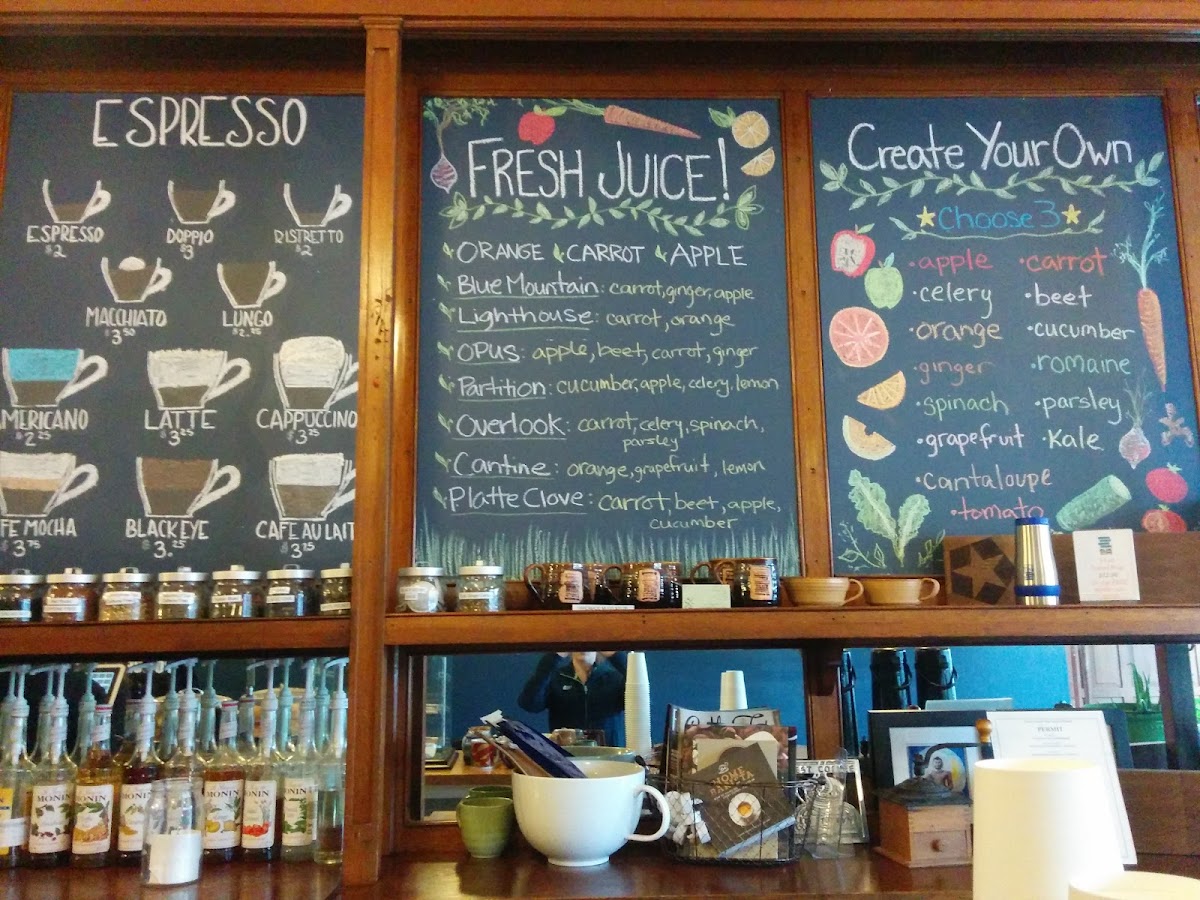 ESPRESSO
ESPRESSO
$2
DOPPIO
$3
RISTRETTO
$2
MACCHIATO
$3.50
LUNGO
$2.75
AMERICANO
$2.25
LATTE
$3.25
CAPPUCCINO
$3.25
FE MOCHA
$3.75
BLACK EYE
$3.25
CAFE AU LAIT
$3.15
FRESH JUICE!
ORANGE CARROT APPLE
Blue Mountain: carrot, ginger, apple
Lighthouse: carrot, orange
OPUS: apple, beet, carrot, ginger
Partition: cucumber, apple, celery, lemon
Overlook: carrot, celery, spinach,
parsley
Cantine: orange, grapefruit, lemon
Platte Clove: carrot, beet, apple,
cucumber
Create Your Own
Choose 3
• apple
• celery
• orange
• ginger
• spinach
• grapefruit
• cantaloupe
• tomato
• carrot
• beet
• cucumber
• romaine
• parsley
• Kale
MONIN
MONIN
MONIN
MONIN
MONIN
MONIN
HOME
BARISTA
PERMIT